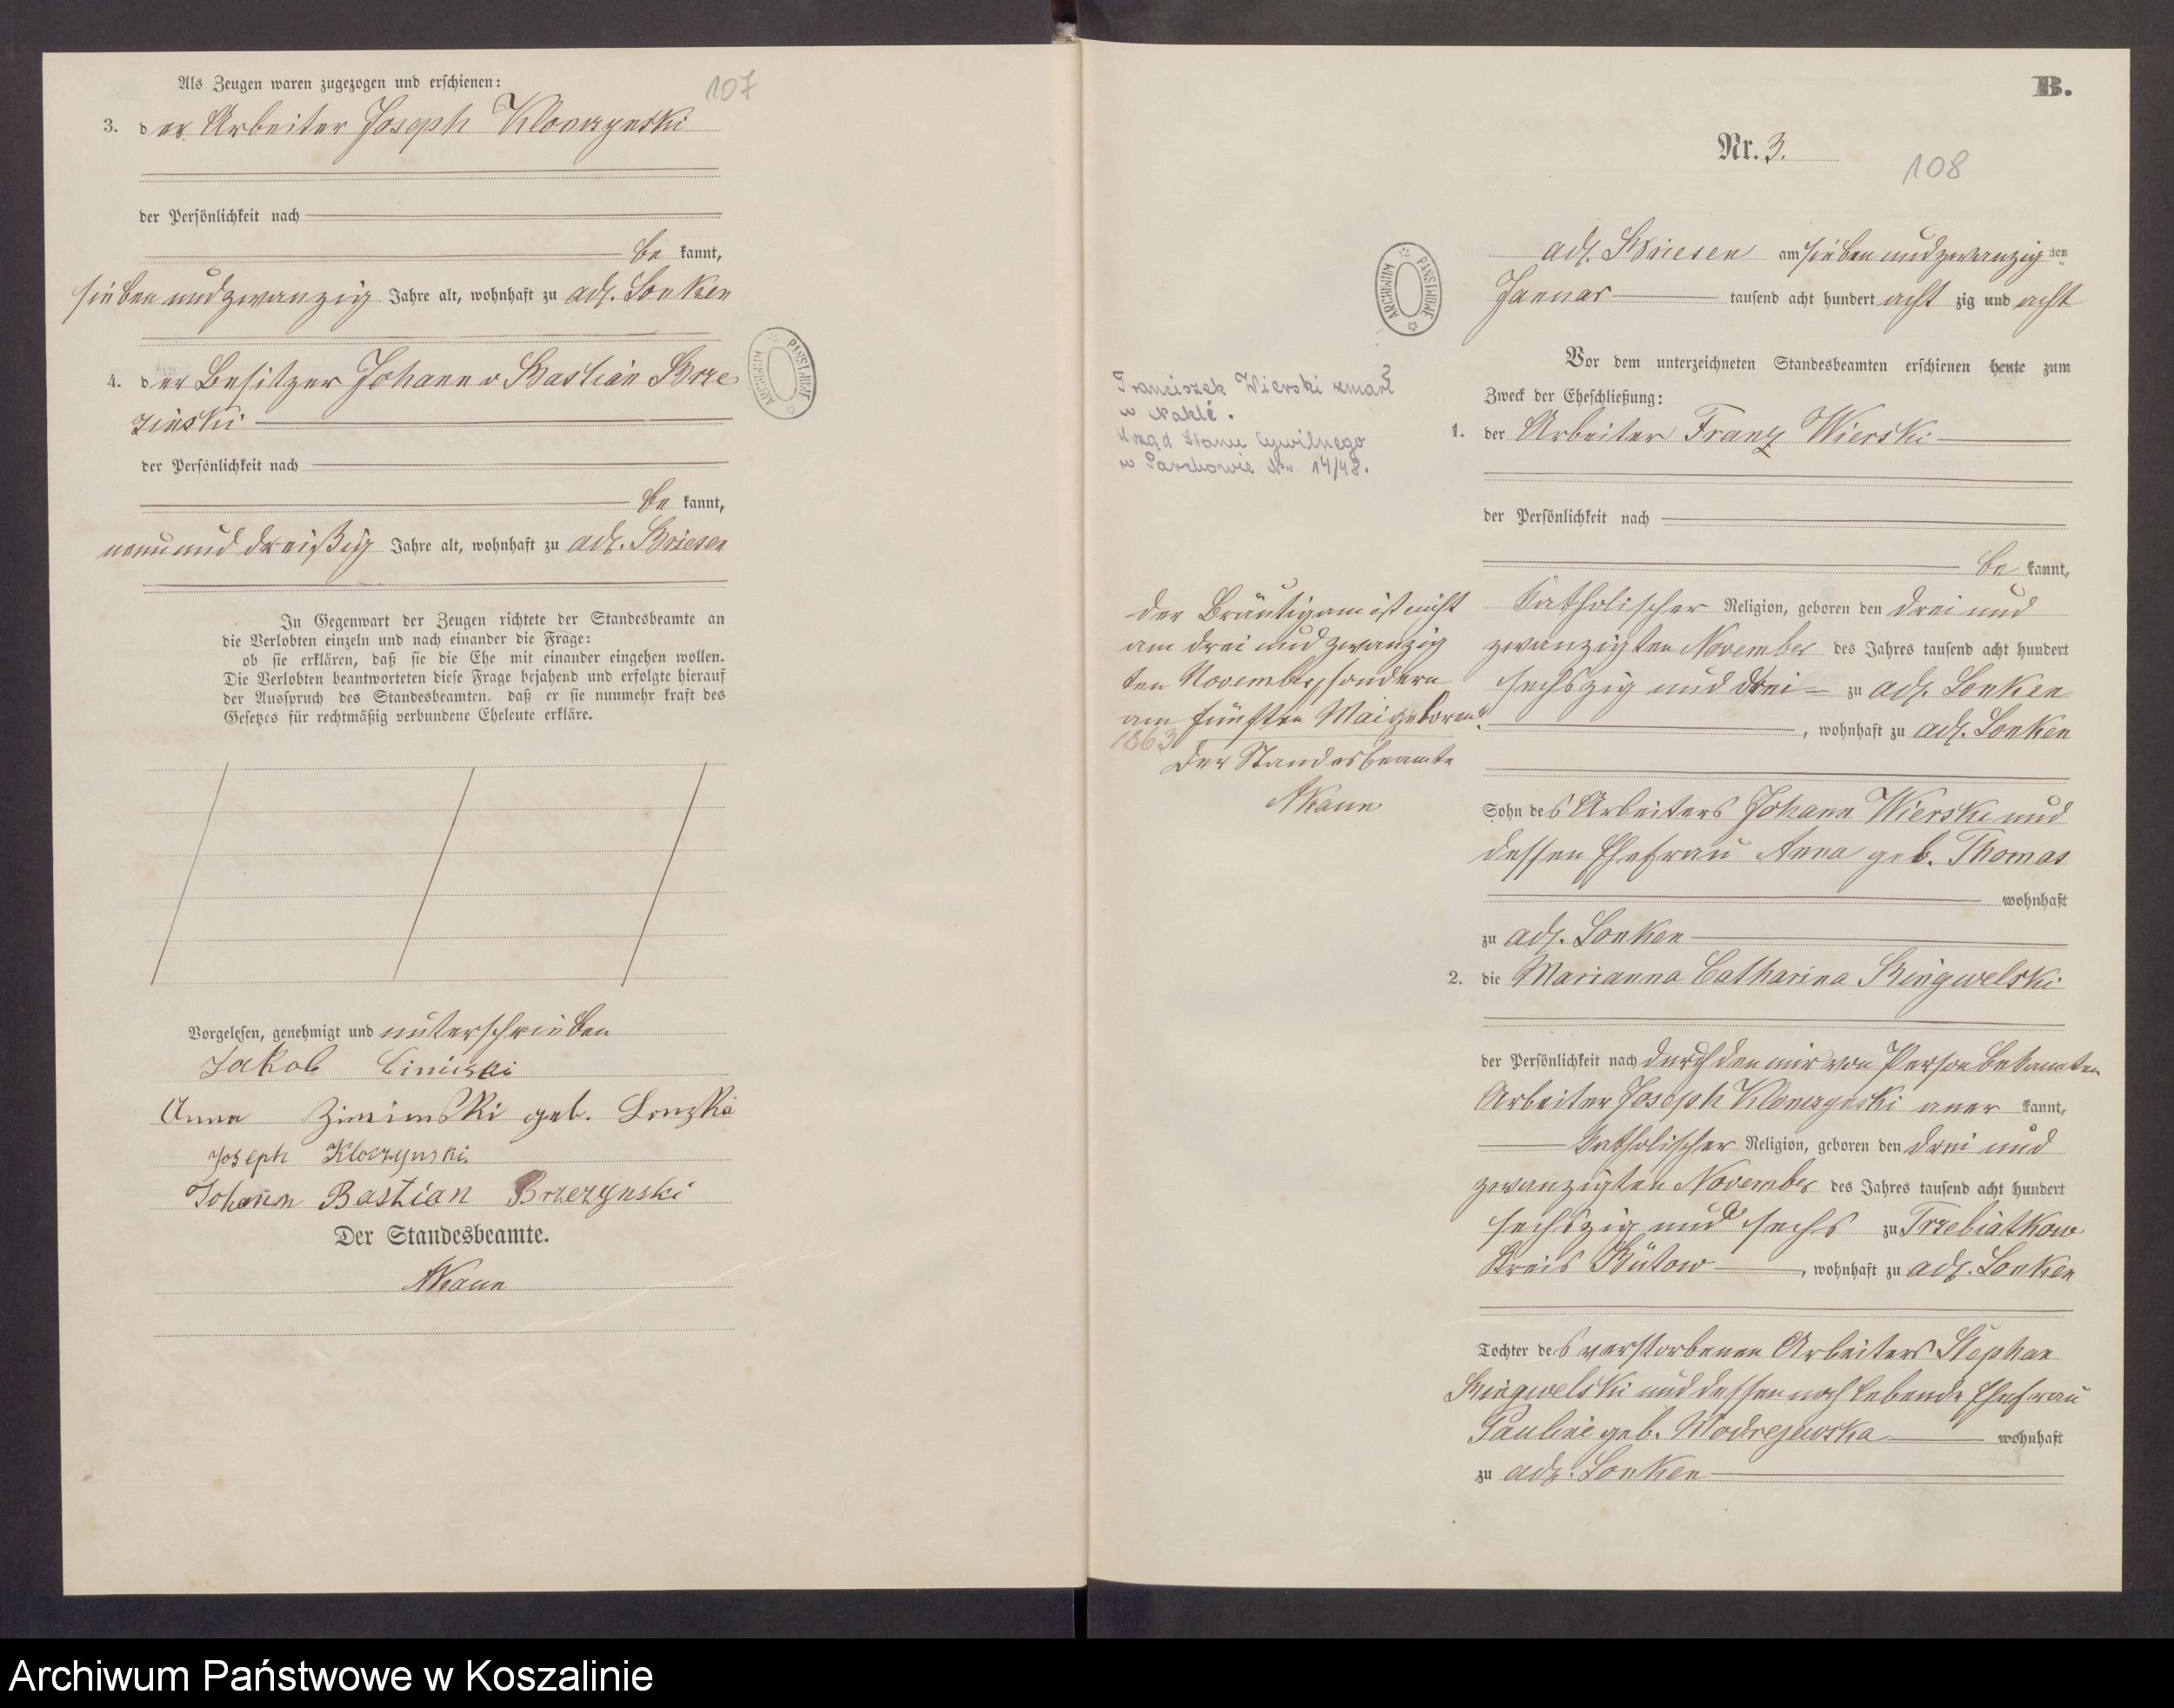 107
Als Zeugen waren zugezogen und erschienen:
3. der Arbeiter Joseph Kloczynski
der Persönlichkeit nach
be kannt,
sieben und zwanzig Jahre alt, wohnhaft zu adl. Lonken
4. der Besitzer Johann v Bastian Brze
zinski
der Persönlichkeit nach
be kannt,
neun und dreißig Jahre alt, wohnhaft zu adl. Briesen
In Gegenwart der Zeugen richtete der Standesbeamte an
die Verlobten einzeln und nach einander die Frage:
ob sie erklären, daß sie die Ehe mit einander eingehen wollen.
Die Verlobten beantworteten diese Frage bejahend und erfolgte hierauf
der Ausspruch des Standesbeamten, daß er sie nunmehr kraft des
Gesetzes für rechtmäßig verbundene Eheleute erkläre.
Vorgelesen, genehmigt und unterschrieben
Jakob
Anna geb.
Joseph Kloczynski
Johann Bastian Brzezynski
Der Standesbeamte.
ARCHIWUM PAŃSTWOWE
B.
Nr. 3.
108
adl. Briesen am sieben und zwanzig ten
Januar tausend acht hundert acht zig und acht
Vor dem unterzeichneten Standesbeamten erschienen heute zum
Zweck der Eheschließung:
1. der Arbeiter Franz Wierski
der Persönlichkeit nach
be kannt,
katholischer Religion, geboren den drei und
zwanzigsten November des Jahres tausend acht hundert
sechszig und drei zu adl. Lonken
, wohnhaft zu adl. Lonken
Sohn des Arbeiters Johann Wierski und
dessen Ehefrau Anna geb. Thomas
wohnhaft
zu adl. Lonken
2. die Marianna Catharina Bingwelski
der Persönlichkeit nach durch den mir von Person bekannten
Arbeiter Joseph Kloczynski aner kannt,
katholischer Religion, geboren den drei und
zwanzigsten November des Jahres tausend acht hundert
sechszig und sechs zu Trzebiatkow
Kreis Bütow, wohnhaft zu adl. Lonken
Tochter des verstorbenen Arbeiters Stephan
Bingwelski und dessen noch lebende Ehefrau
Pauline geb. Modrejewska wohnhaft
zu adl. Lonken
ARCHIWUM PAŃSTWOWE
Franciszek Wierski zmarł
w Nakle.
Urząd Stanu Cywilnego
w Parchowie Nr. 14/48.
Der Bräutigam ist nicht
am drei und zwanzig
ten November, sondern
am fünften Mai geboren.
1863
Der Standesbeamte
Archiwum Państwowe w Koszalinie